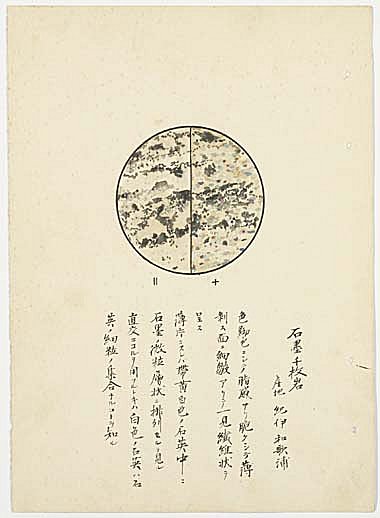 = +
石墨千枚岩
産地 紀伊 和歌浦
色鋼色ニシテ脂感アリ脆クシテ薄
剥ス面ハ細皺アリテ一見繊維状ヲ
呈ス
薄片ニテハ帯黄白色ノ石英中ニ
石墨ノ微粒層状ニ排列セルヲ見ル
直交ニコルヲ用フルトキハ白色ノ石英ハ石
英ノ細粒ノ集合ナルコトヲ知ル